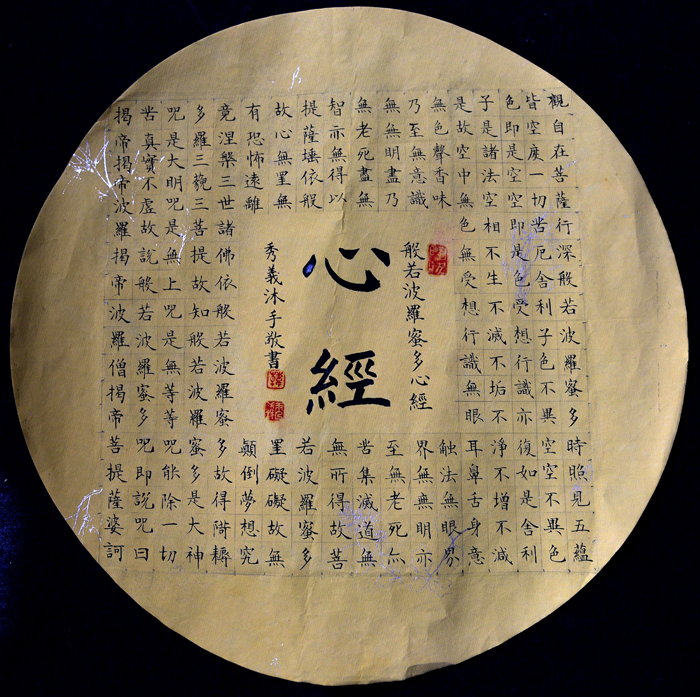 觀自在菩薩行深般若波羅蜜多時照見五蘊
皆空度一切苦厄舍利子色不異空空不異色
色即是空空即是色受想行識亦復如是舍利
子是諸法空相不生不滅不垢不淨不增不減
是故空中無色無受想行識無眼耳鼻舌身意
無色聲香味觸法無眼界
乃至無意識界無無明亦
無無明盡乃至無老死亦
無老死盡無苦集滅道無
智亦無得以無所得故菩
提薩埵依般若波羅蜜多
故心無罣無罣礙礙故無
有恐怖遠離顛倒夢想究
竟涅槃三世諸佛依般若波羅蜜多故得阿耨
多羅三藐三菩提故知般若波羅蜜多是大神
咒是大明咒是無上咒是無等等咒能除一切
苦真實不虛故說般若波羅蜜多咒即說咒曰
揭帝揭帝波羅揭帝波羅僧揭帝菩提薩婆訶
般若波羅蜜多心經
心經
秀義沐手敬書